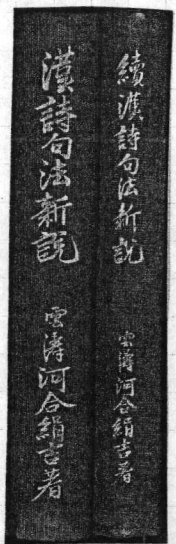 續漢詩句法新說
雲濤河合絹吉著
漢詩句法新說
雲濤河合絹吉著